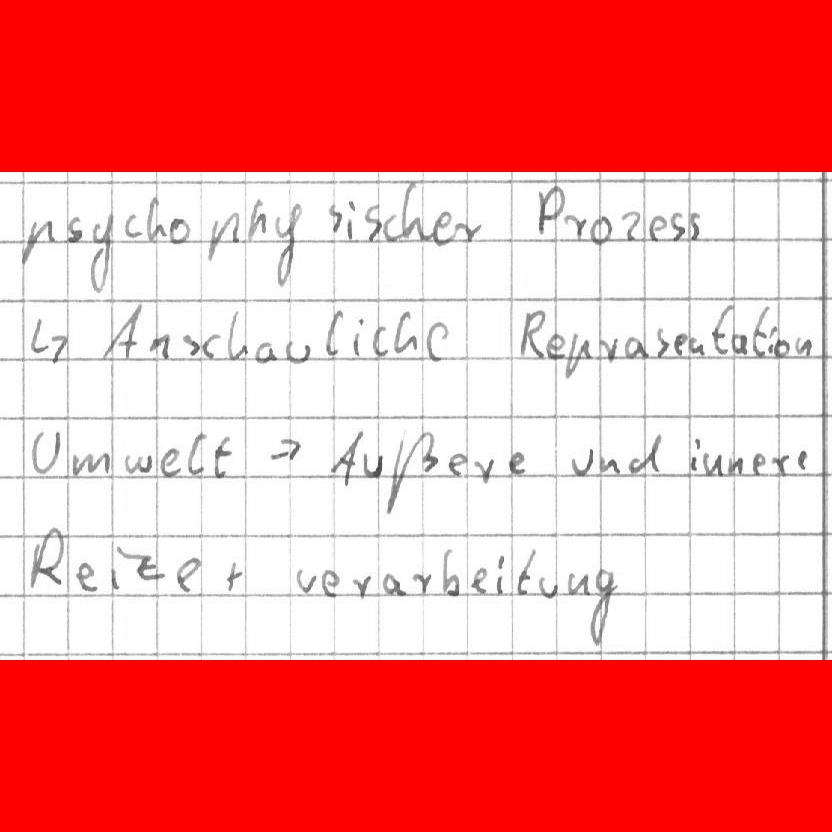 psychophysischer Prozess
↳ Anschauliche Repräsentation
Umwelt → Äußere und innere
Reize + verarbeitung